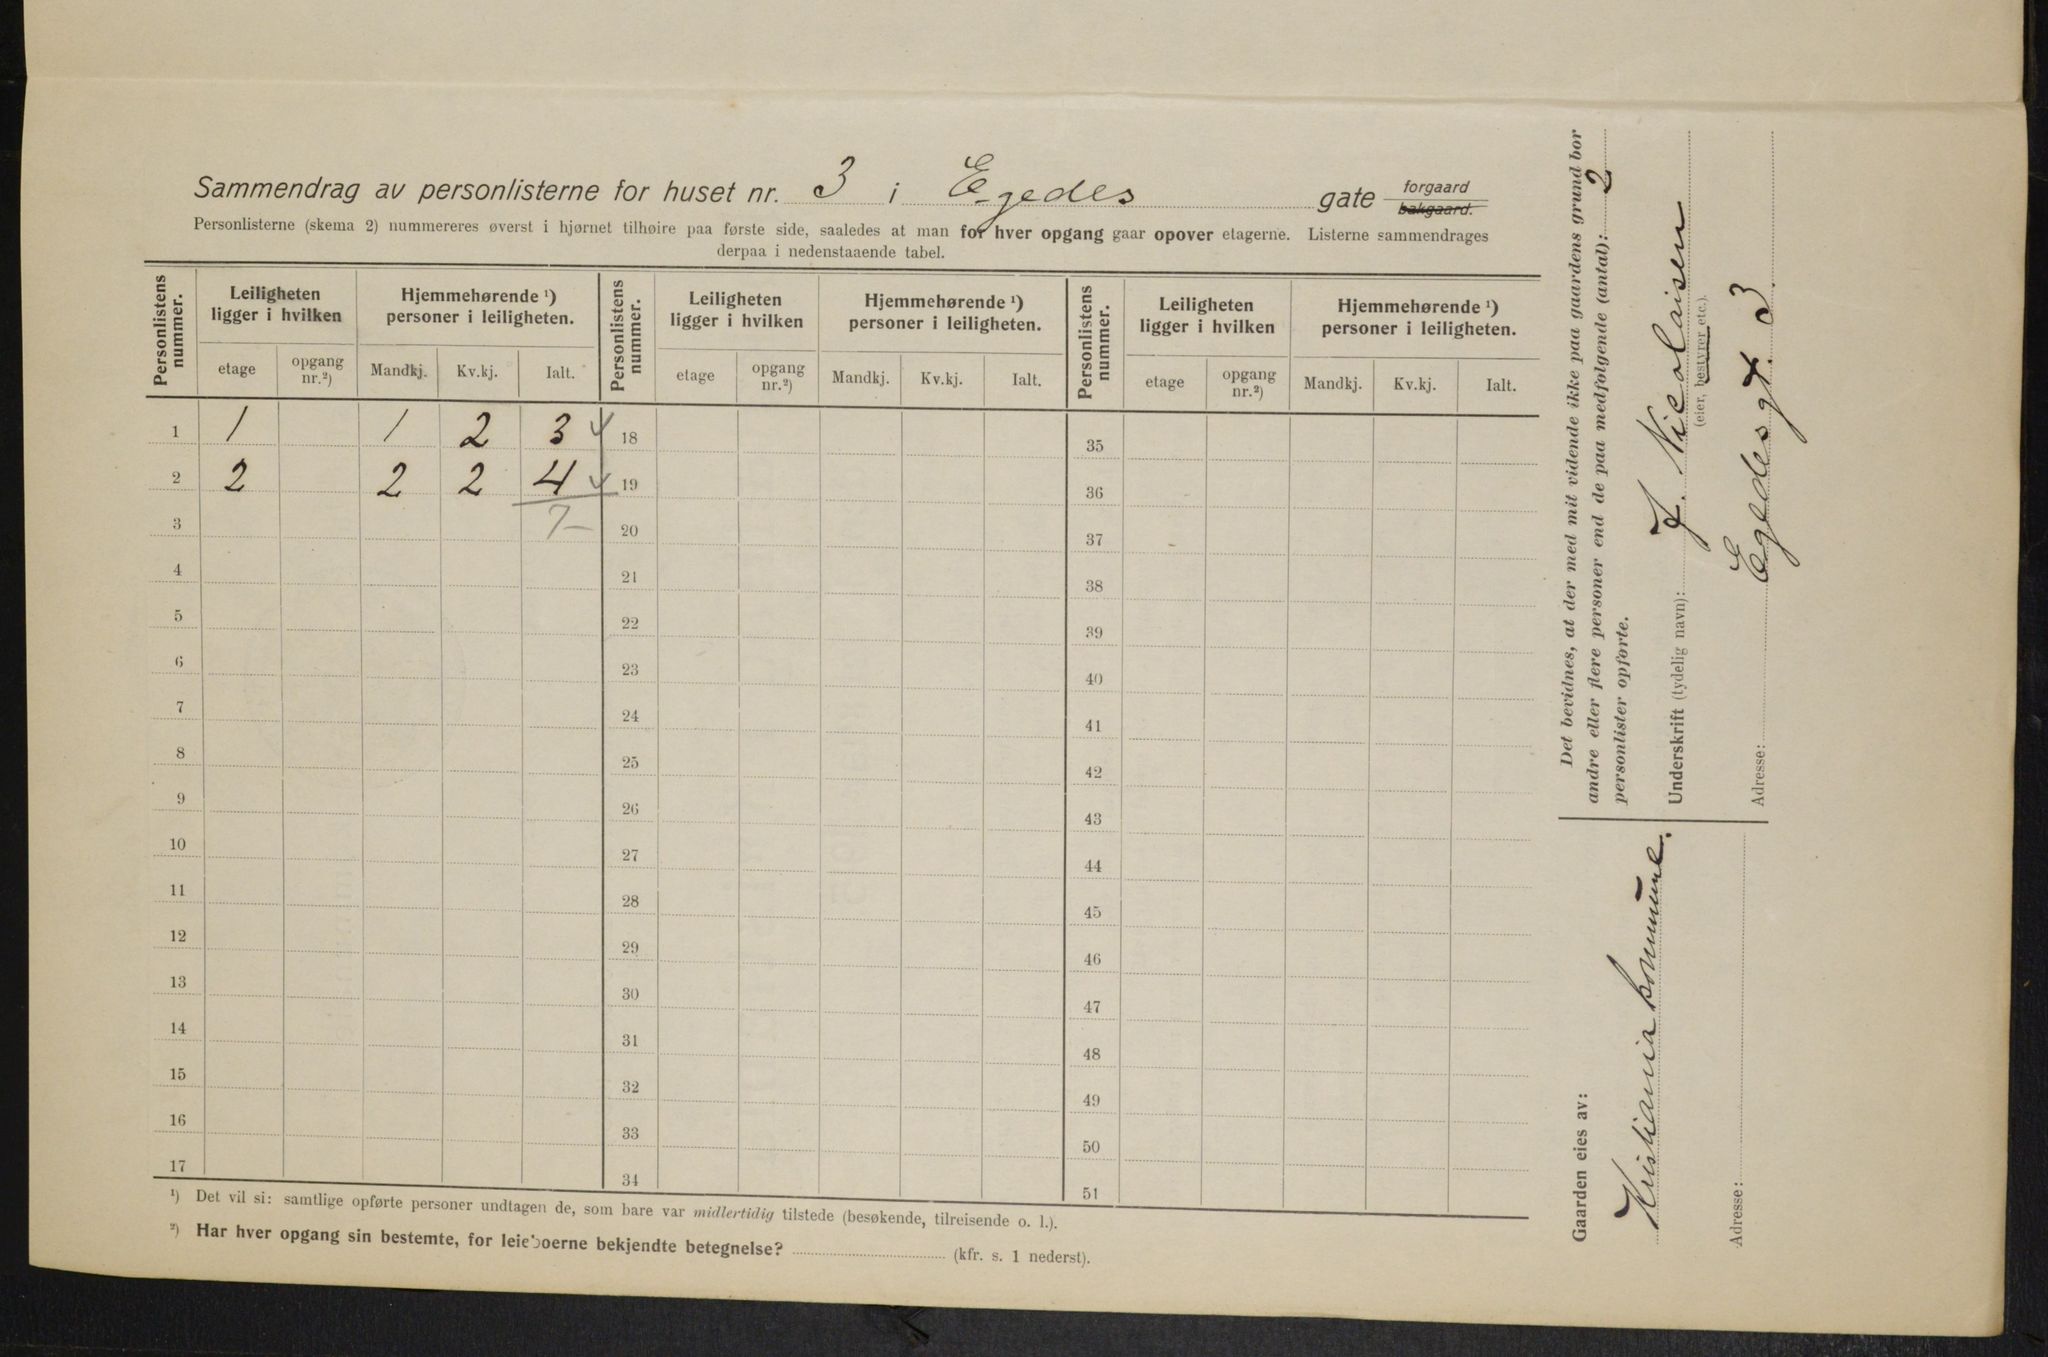 Sammendrag av personlisterne for huset nr. 3 i Egedes gate forgaard bakgaard.
Personlisterne (skema 2) nummereres øverst i hjørnet tilhøire paa første side, saaledes at man for hver opgang gaar opover etagerne. Listerne sammendrages
derpaa i nedenstaaende tabel.
Personlistens nummer. Leiligheten ligger i hvilken Hjemmehørende ¹) personer i leiligheten. Personlistens nummer. Leiligheten ligger i hvilken Hjemmehørende ¹) personer i leiligheten. Personlistens nummer. Leiligheten ligger i hvilken Hjemmehørende ¹) personer i leiligheten.
etage opgang nr.²) Mandkj. Kv.kj. Ialt. etage opgang nr.²) Mandkj. Kv.kj. Ialt. etage opgang nr.²) Mandkj. Kv.kj. Ialt.
1 1 1 2 3 18 35
2 2 2 2 4 19 36
3 7 20 37
4 21 38
5 22 39
6 23 40
7 24 41
8 25 42
9 26 43
10 27 44
11 28 45
12 29 46
13 30 47
14 31 48
15 32 49
16 33 50
17 34 51
¹) Det vil si: samtlige opførte personer undtagen de, som bare var midlertidig tilstede (besøkende, tilreisende o. l.).
²) Har hver opgang sin bestemte, for leieboerne bekjendte betegnelse? (kfr. s. 1 nederst).
Det bevidnes, at der med mit vidende ikke paa gaardens grund bor
andre eller flere personer end de paa medfølgende (antal): 2
personlister opførte.
Underskrift (tydelig navn): J. Nicolaisen
(eier, bestyrer etc.).
Adresse: Egedes gt. 3
Gaarden eies av:
Kristiania kommune.
Adresse: